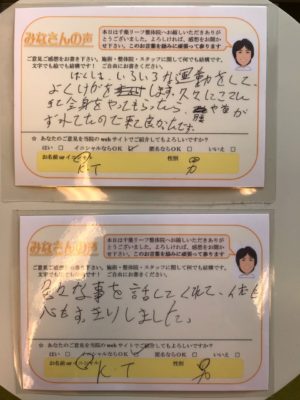 みなさんの声
本日は千種リーフ整体院へお越しいただきありが
とうございました。よろしければ、感想をお聞か
せ下さい。このお言葉を励みに頑張って参ります
ご意見ご感想をお書き下さい。施術・整体院・スタッフに関して何でも結構です。
文字でも絵でも結構です! ご自由にお書きください。
ぼくは、いろいろな運動をして、
よくけがをします。久々にここに
来て全身をやってもらったら、
ずれてたので来て良かったです。
☆ あなたのご意見を当院の web サイトでご紹介してもよろしいですか?
はい □ イニシャルならOK □ 匿名ならOK □ いいえ □
お名前 or イニシャル
K.T
性別
男
みなさんの声
本日は千種リーフ整体院へお越しいただきありが
とうございました。よろしければ、感想をお聞か
せ下さい。このお言葉を励みに頑張って参ります
ご意見ご感想をお書き下さい。施術・整体院・スタッフに関して何でも結構です。
文字でも絵でも結構です! ご自由にお書きください。
色々な事を話してくれて、体も
心もすっきりしました。
☆ あなたのご意見を当院の web サイトでご紹介してもよろしいですか?
はい □ イニシャルならOK □ 匿名ならOK □ いいえ □
お名前 or イニシャル
K.T
性別
男